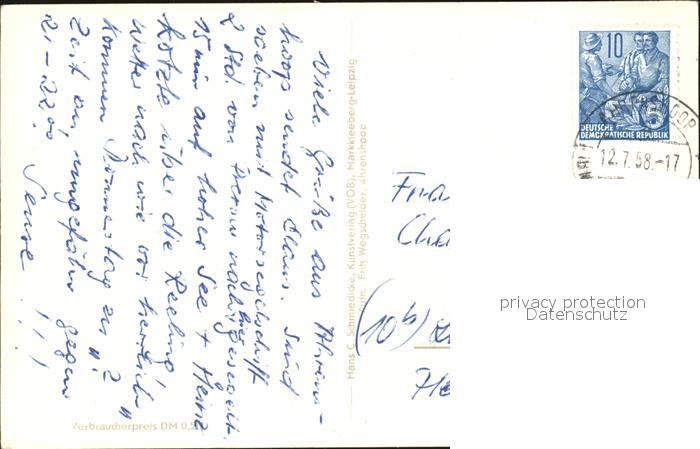 Viele Grüße aus Ahrens-
hoop sendet Claus. Sind
soeben mit Motorsegelschiff
2 Std. von Prerow nach hier gesegelt.
15 min auf hoher See + Heinz
kotzte über die Reeling!
Wetter nach wie vor herrlich
Kommen Donnerstag zur "2"
Zeit an, ungefähr gegen
21 - 22.00
Verbraucherpreis DM 0,2
Hans C. Schmiedicke, Kunstverlag (VOB), Markkleeberg-Leipzig
Fritz Wegscheider, Ahrenshoop
10
DEUTSCHE
DEMOKRATISCHE REPUBLIK
12.7.58.-17
Frau
Cha
(10
He
privacy protection
Datenschutz